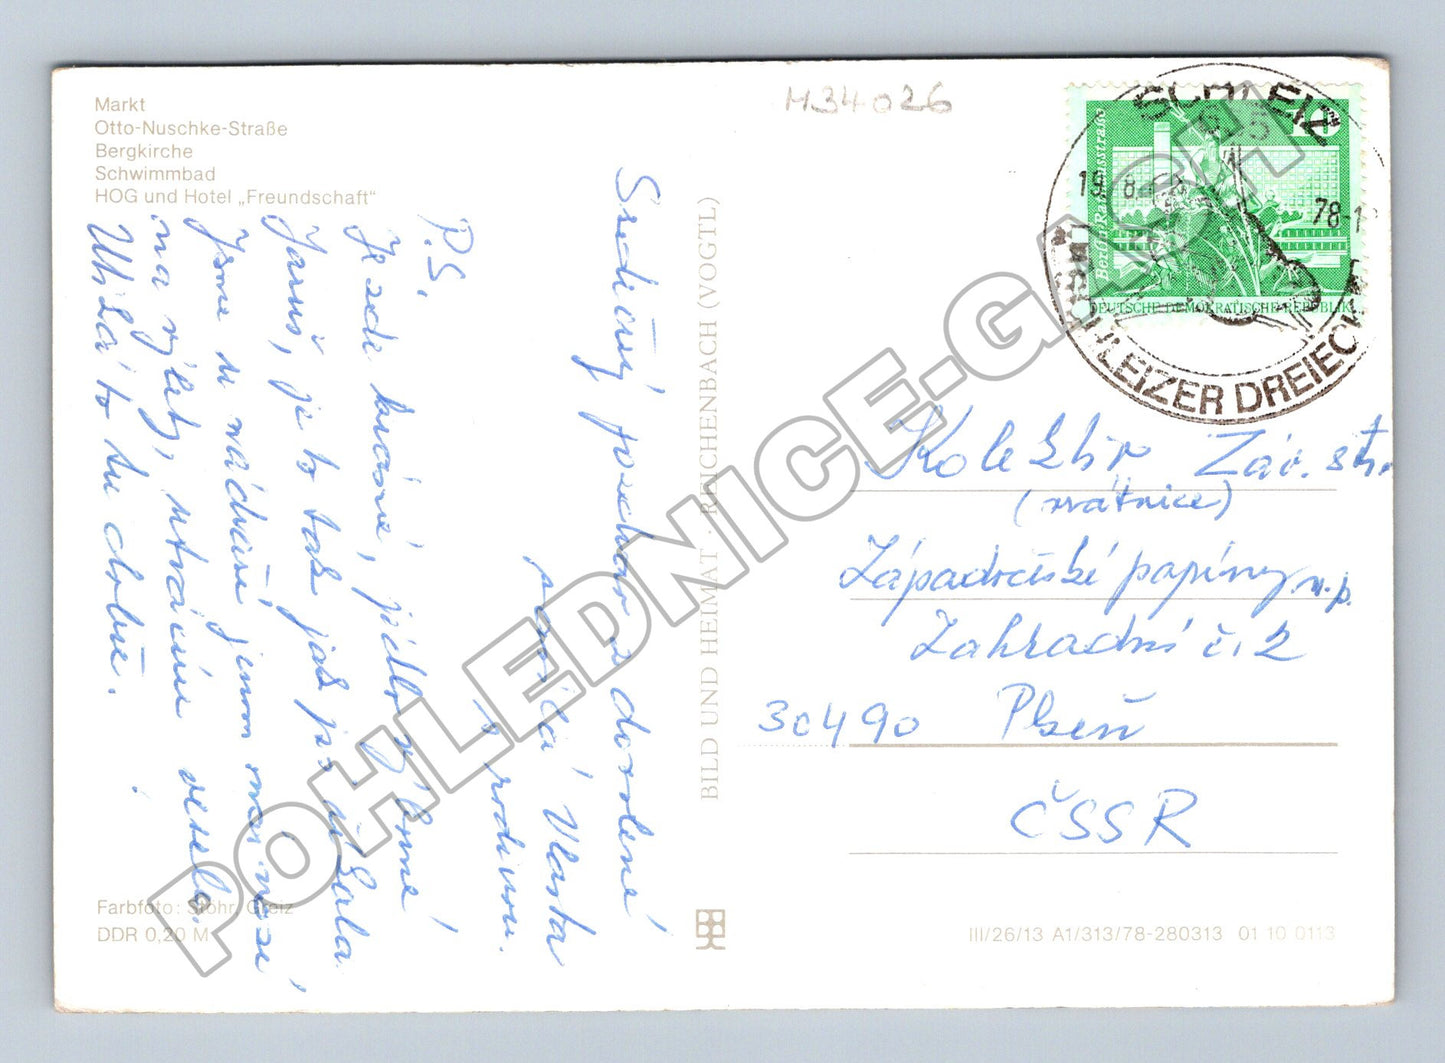 Markt
Otto-Nuschke-Straße
Bergkirche
Schwimmbad
HOG und Hotel „Freundschaft"
M34026
SCHLEIZ
78-1
SCHLEIZER DREIECK
10
Berlin Rathausstraße
DEUTSCHE DEMOKRATISCHE REPUBLIK
Srdečný pozdrav z dovolené
posílá Vlasta
s rodinou.
P.S.
Je zde krásně, jídlo výborné
Jaruš, je to tak jak js
Jsme u nádraží, jenom
na výlety,
to tu dobře.
BILD UND HEIMAT · REICHENBACH (VOGTL)
Kolektiv Záv. str.
(vrátnice)
Západočeské papírny n.p.
Zahradní č. 2
30490 Plzeň
ČSSR
Farbfoto: Stöhr, Greiz
DDR 0,20 M
III/26/13 A1/313/78-280313 01 10 0113
POHLEDNICE-GASCH